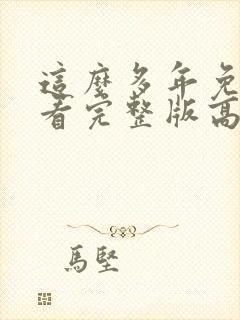 這麼多年免
看完整版高
馬堅